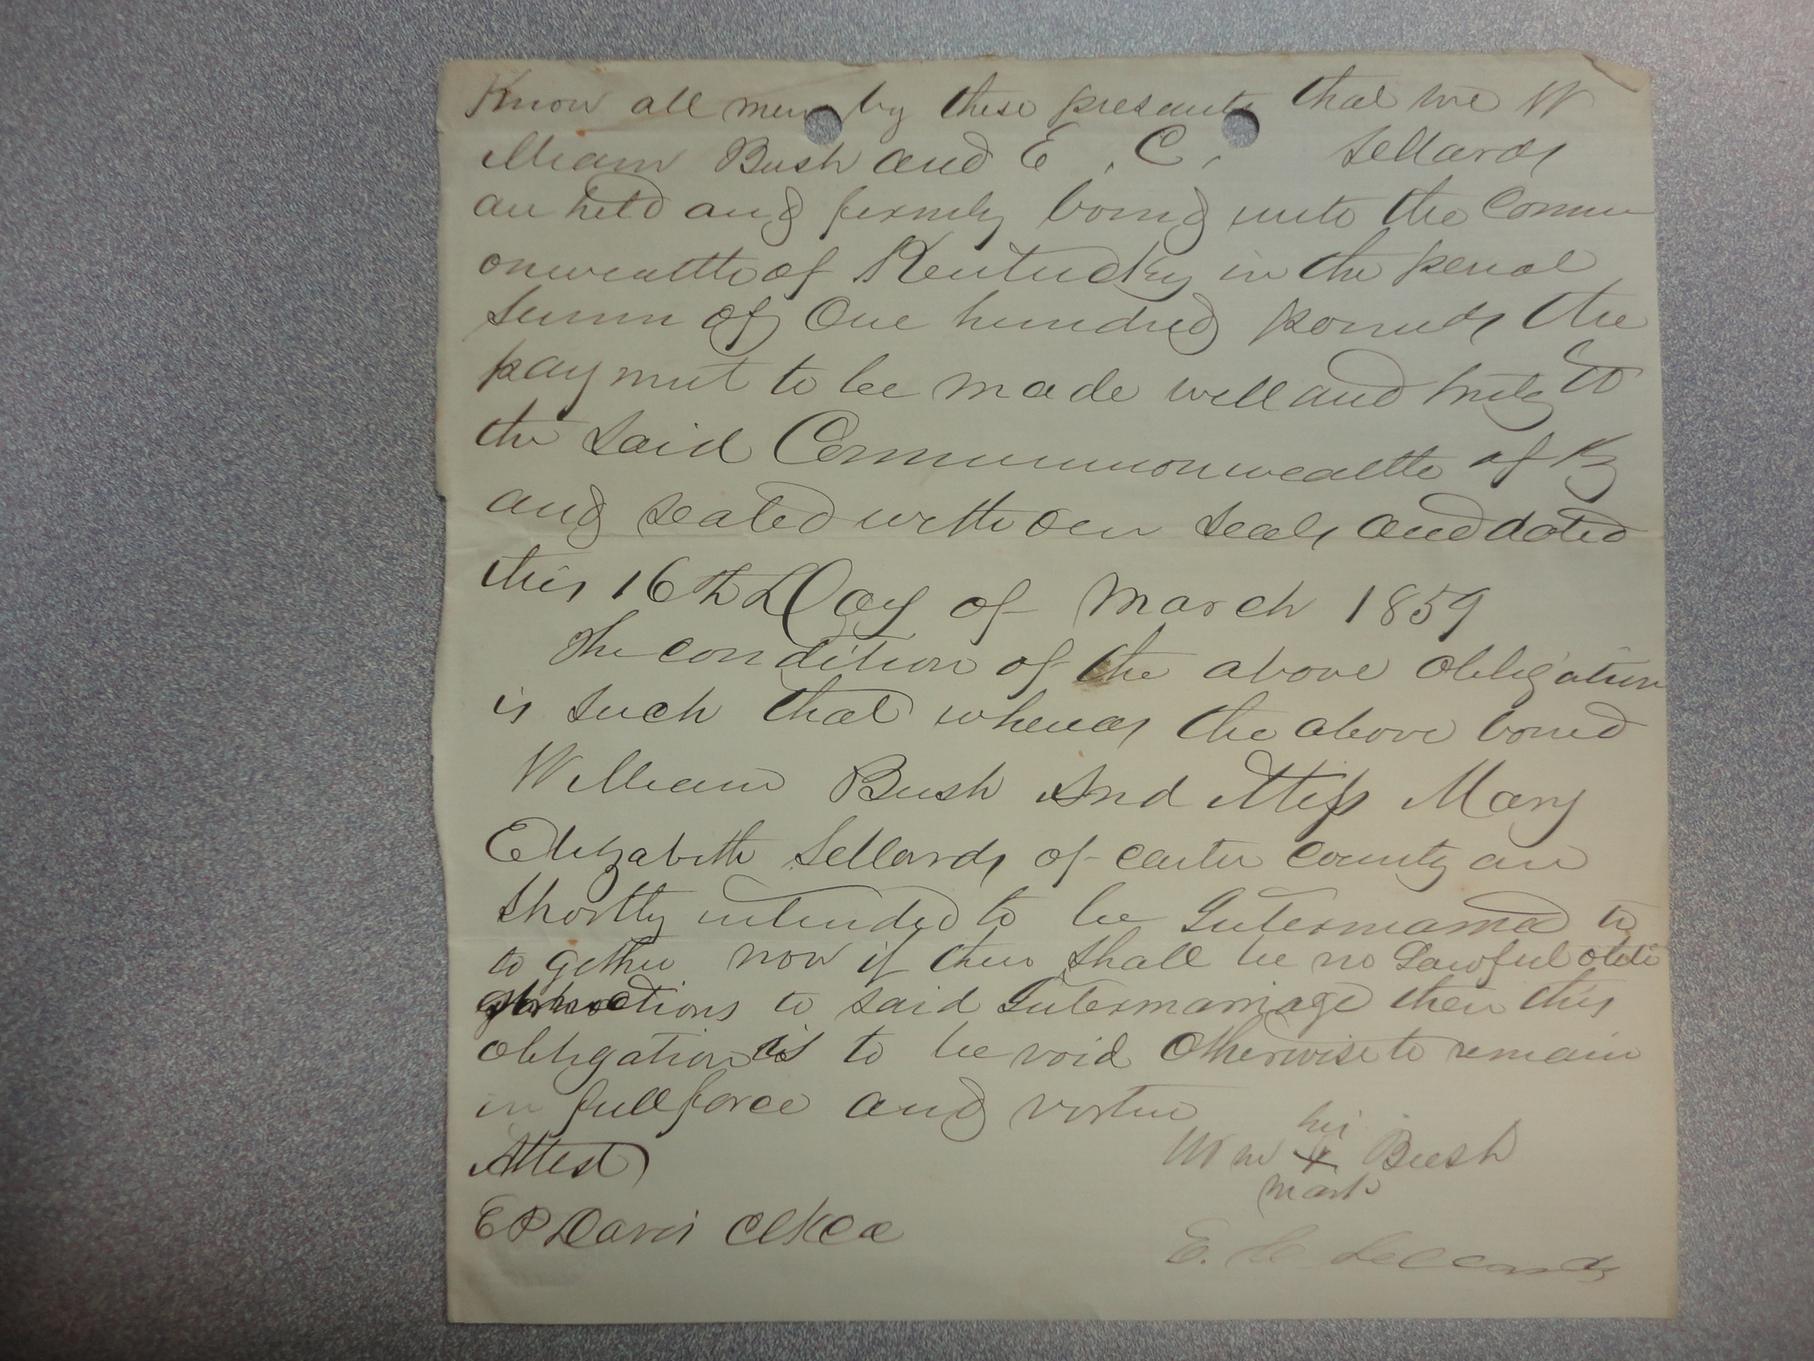 Know all men by these presants that we W
illiam Bush and E. C. Sellards
are held and firmly bound unto the Comm
onwealth of Kentucky in the penal
Summ of One hundred pounds the
payment to be made well and truly to
the said Commonwealth of Ky
and sealed with our seals and dated
this 16th Day of March 1859
The condition of the above obligation
is such that whereas the above bound
William Bush And Miss Mary
Elizabeth Sellards of Carter County are
Shortly intended to be Intermarried to
to gether now if there shall be no Lawful
obstructions to said Intermarriage then this
obligation is to be void Otherwise to remain
in full force and vertue
Attest
E P Davis Clk CC
his
Wm X Bush
mark
E. C. Sellards